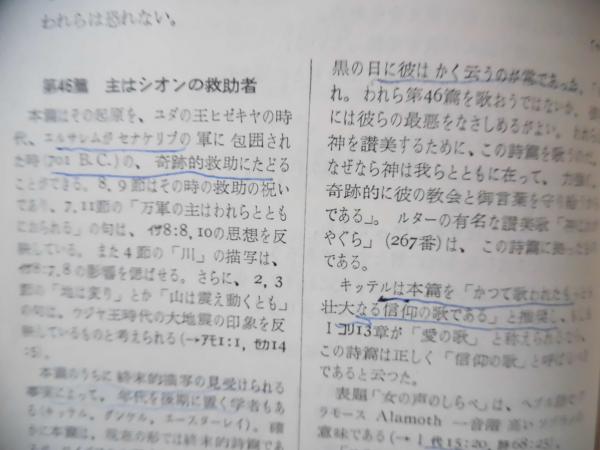 われらは恐れない。
第46篇 主はシオンの救助者
本篇はその起原を、ユダの王ヒゼキヤの時
代、エルサレムがセナケリブの軍に包囲され
た時(701 B.C.)の、奇跡的救助にたどる
ことができる。8, 9節はその時の救助の祝い
であり、7, 11節の「万軍の主はわれらととも
におられる」の句は、イザ8:8, 10の思想を反
映している。また4節の「川」の描写は、
イザ8:7, 8の影響を偲ばせる。さらに、2, 3
節の「地は変り」とか「山は震え動くとも」
の句は、ウジヤ王時代の大地震の印象を反
映しているものと考えられる(→アモ1:1, ゼカ14
:5)。
本篇のうちに終末的描写の見受けられる
事実によって、年代を後期に置く学者もあ
る(キッテル、グンケル、エースターレイ)。確
かに本篇は、現在の形では終末的詩篇であ
黒の日に彼は かく云うのが常であった、
れ。われら第46篇を歌おうではないか、
には彼らの最悪をなさしめるがよい。われら
神を讃美するために、この詩篇を歌うのだ。
なぜなら神は我らとともに在って、力強く
奇跡的に彼の教会と御言葉を守り給うから
である」。ルターの有名な讃美歌「神は
やぐら」(267番)は、この詩篇に拠った
である。
キッテルは本篇を「かつて歌われたもっとも
壮大なる信仰の歌である」と推奨し、もし
Iコリ13章が「愛の歌」と称えられるなら、
この詩篇は正しく「信仰の歌」と呼ば
であると云つた。
表題「女の声のしらべ」は、ヘブル語で
ラモース Alamoth ―音階 高い ソプラノの
意味である(→ I 代15:20, 詩68:25)。